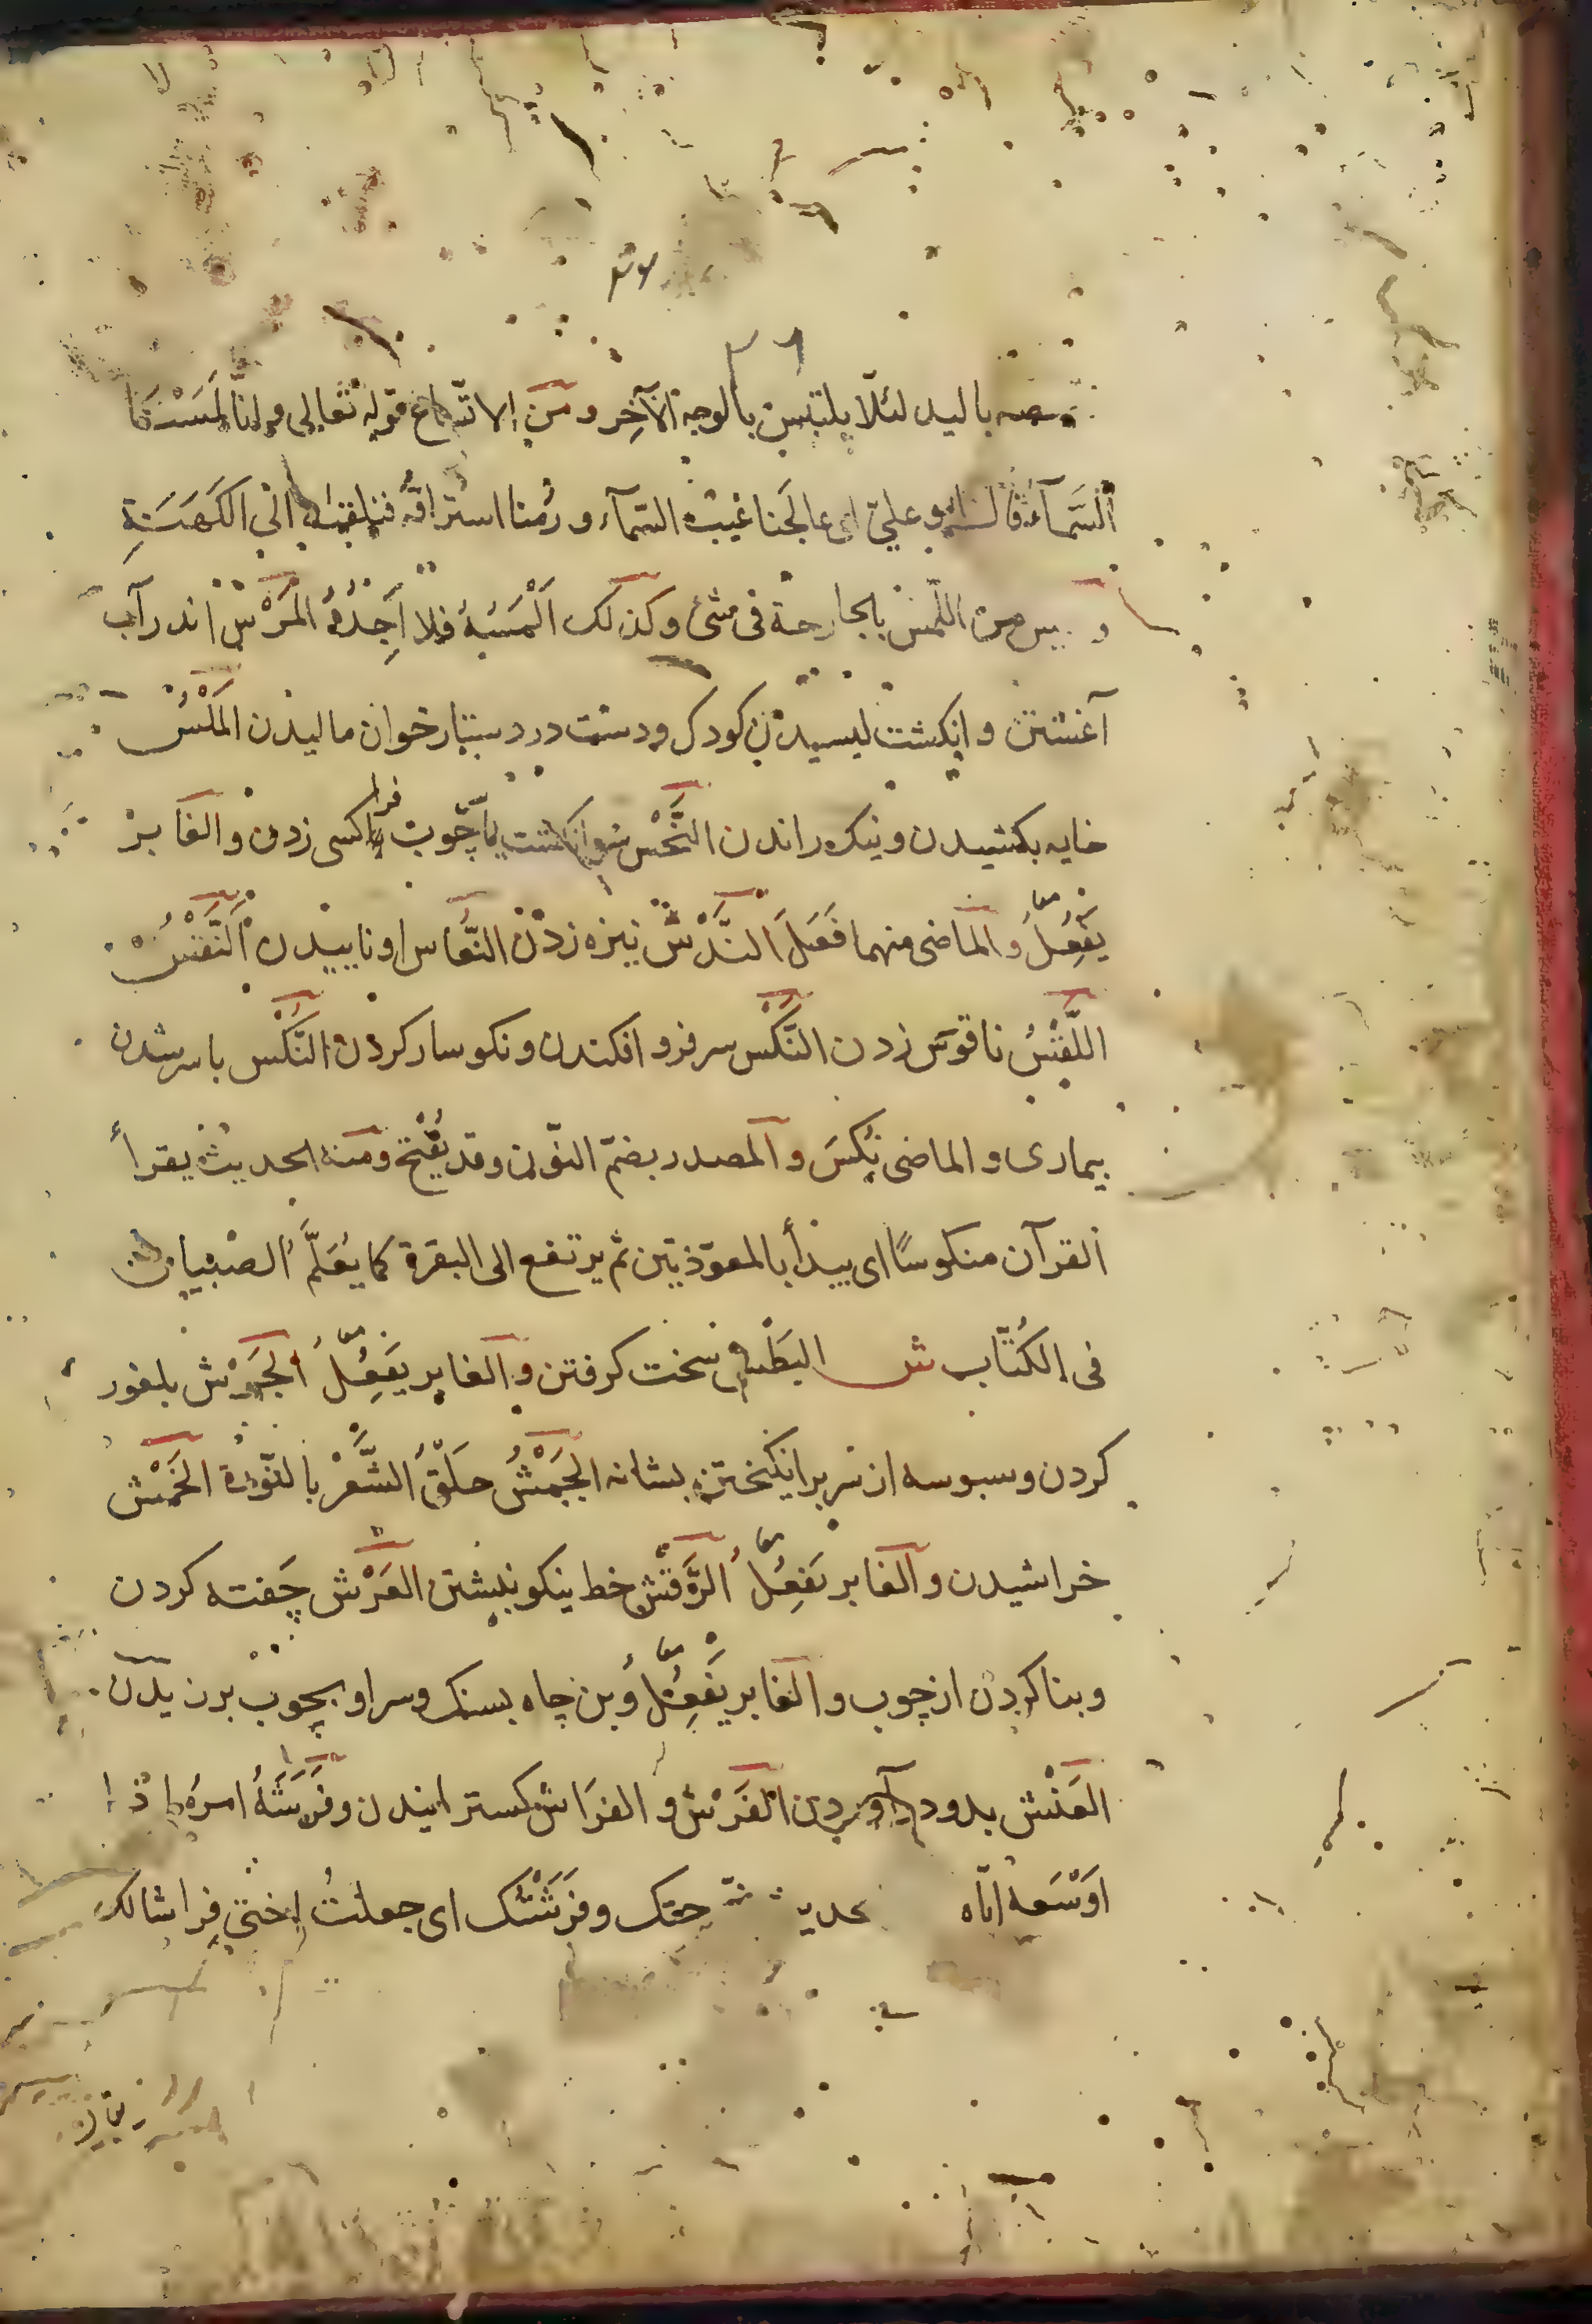 ٣٦
باليد لئلّا يلتبس بالوجه الآخر ومن الاتّباع قوله تعالى وانّا لمسنا
السَّمآءَ قال ابو عليّ اى عالجنا غيب السّمآء ورُمنا استراقه فنلقيه الى الكَهَنَةِ
و ليس من اللّمس بالجارحة فى شئ وكذلك اَلْمَسُهُ فلا اَجِدُهُ المَرْسُ اندر آب
آغشتن و انكشت ليسيدن كودك ودست در دستار خوان ماليدن المَلْسُ
خايه بكشيدن و نيك راندن النَّخْس سر انكشت يا چوب فرا كسى زدن والغابر
يَفعِلُ والماضى منهما فَعَلَ النَّدْسُ نيزه زدن النُّعاس اوناييدن النَّقْسُ
اللَّقْسُ ناقوس زدن النَّكْس سر فرو افكندن ونكوسار كردن النُّكْس با سر شدن
بيمارى والماضى نُكِسَ والمصدر بضمّ النّون وقد يُفْتح ومنه الحديث يقرأ
القرآن منكوسًا اى يبدأ بالمعوّذتين ثم يرتفع الى البقرة كما يُعَلَّمُ الصبيان
فى الكُتّاب ش البَطْش سخت كرفتن والغابر يَفعِلُ الجَرْش بلغور
كردن وسبوسه از سر برانكيختن بشانه الجَمْشُ حلقُ الشَّعْر بالنّورة الخَمْش
خراشيدن والغابر يَفعِلُ الرَّقْش خط نيكو نبشتن العَرْش چَفته كردن
وبنا كردن از چوب والغابر يَفعِلُ وبن چاه بسنك وسر او بچوب برزيدن
العَنْش بدو در آوردن الفَرْش و الفِرَاش كسترانيدن وفَرَشَهُ امرَهُ اذا
اَوْسَعه ايّاه حديث حتك وفَرَشْتُك اى جعلتُ اختى فراشا لك